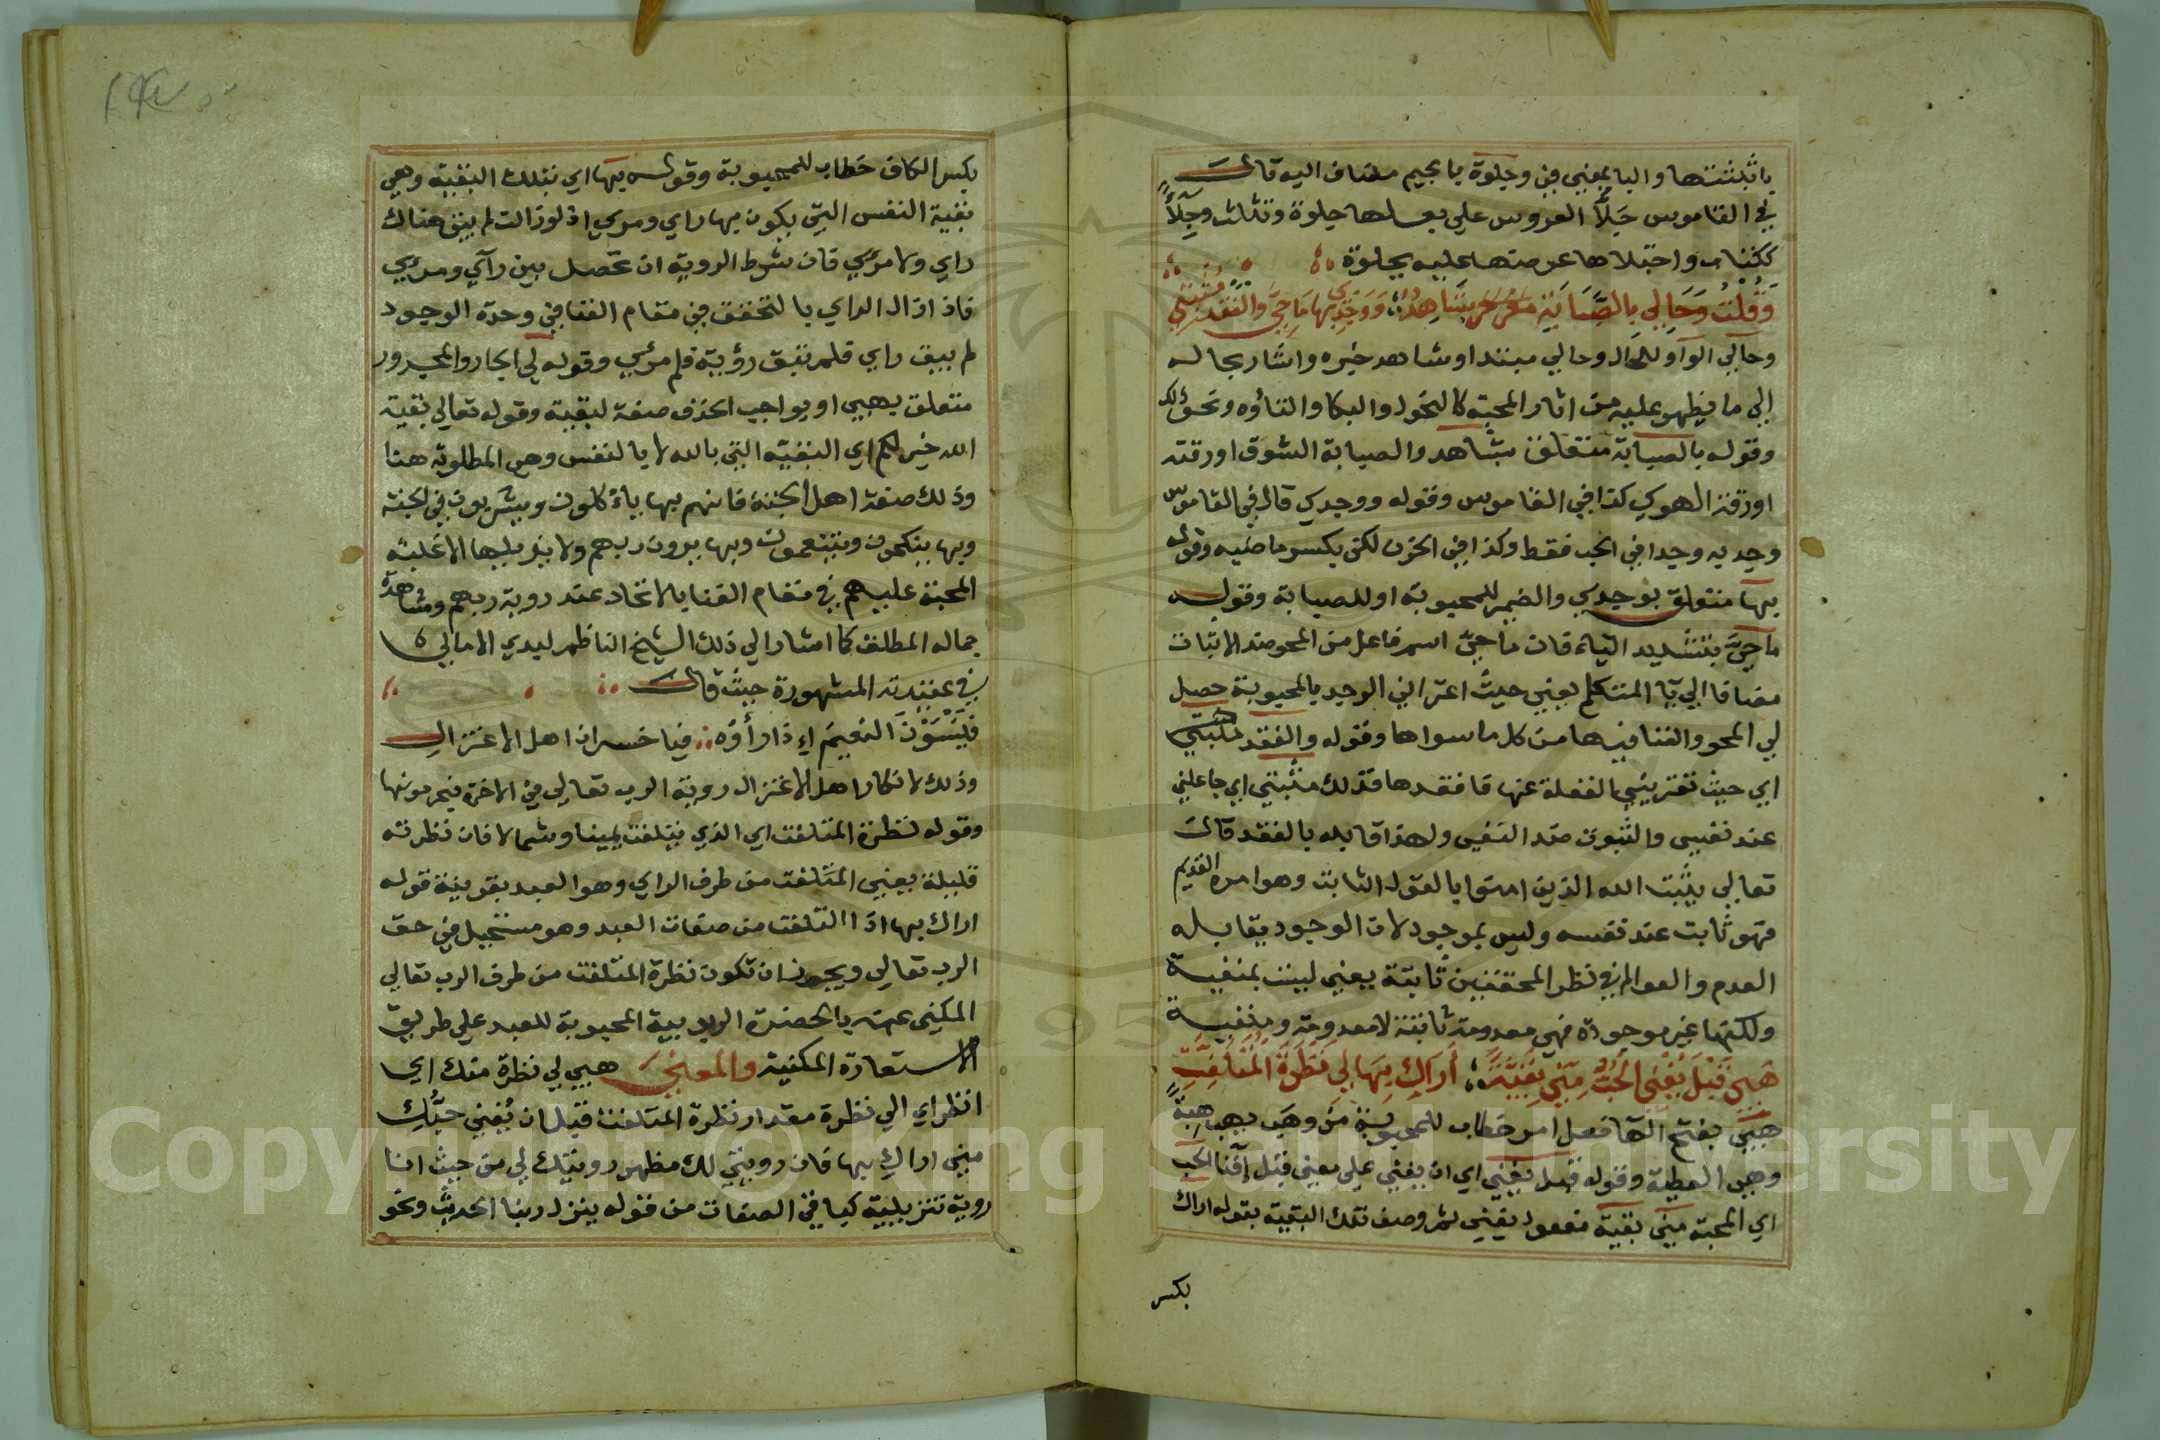 باثبتتها والبا بمعني في وجلوة بالجيم مضاف اليه قال
في القاموس جَلَا العروس علي بعلها جلوة وتثلث وجِلَاءً
ككتاب واجتلاها عرضها عليه مجلوة
وَقُلْتُ وَحَالِي بِالصَّبَابَةِ شَاهِدٌ وَوَجْدِي بِهَا مَاحِيَّ وَالْفَقْدُ مُثْبِتِي
وحالي الواو للحال وحالي مبتدا وشاهد خبره واشار بحاله
الي ما يظهر عليه من اثار المحبة كالنحول والبكا والتاوه ونحو ذلك
وقوله بالصبابة متعلق بشاهد والصبابة الشوق او رقته
او رقة الهوي كذا في القاموس وقوله ووجدي قال في القاموس
وجد به وجدا في الحب فقط وكذا في الحزن لكن يكسر ماضيه وقوله
بها متعلق بوجدي والضمير للمحبوبة او للصبابة وقوله
ماحيَّ بتشديد الياء فان ماحيّ اسم فاعل من المحو ضد الاثبات
مضافا الي يا المتكلم يعني حيث اعتراني الوجد بالمحبوبة حصل
لي المحو والفنا فيها من كل ما سواها وقوله والفقد مثبتي
اي حيث تعتريني الغفلة عنها فافقدها فذلك مثبتي اي جاعلني
عند نفسي والثبوت ضد النفي ولهذا قابله بالفقد قال
تعالي يثبت الله الذين امنوا بالقول الثابت وهو امره القديم
فهو ثابت عند نفسه وليس بموجود لان الوجود يقابله
العدم والعوالم في نظر المحققين ثابتة يعني ليست بمنفية
ولكنها غير موجودة فهي معدومة ثابتة لا معدومة ومنفية
هَبِي قَبْلَ يُفْنِي الحُبُّ مِنِّي بَقِيَّةً أَرَاكِ بِهَا لِي نَظْرَةَ الْمُتَلَفِّتِ
هبي بفتح الها فعل امر خطاب للمحبوبة من وهب يهب هِبَةً
وهي العطية وقوله قبل يفني اي ان يفني علي معني قبل إفنا الحب
اي المحبة منّي بقية مفعول يفني ثم وصف تلك البقية بقوله اراك
بكسر
بكسر الكاف خطاب للمحبوبة وقوله بها اي بتلك البقية وهي
بقية النفس التي يكون بها راي ومري اذ لو زالت لم يبق هناك
راي ولا مرئي فان شرط الروية ان تحصل بين رآي ومرئي
فاذا زال الراي بالتحقق في مقام الفنا في وحدة الوجود
لم يبق راي فلم تبق رؤية فلم مرئي وقوله لي الجار والمجرور
متعلق بهبي او بواجب الحذف صفة لبقية وقوله تعالي بقيّة
الله خير لكم اي البقية التي بالله لا بالنفس وهي المطلوبة هنا
وذلك صفة اهل الجنة فانهم بها ياكلون ويشربون في الجنة
وبها ينكحون ويتنعمون وبها يرون ربهم ولا يزيلها الا غلبة
المحبة عليهم في مقام الفنا بالاتحاد عند روية ربهم ومشاهدة
جماله المطلق كما اشار الي ذلك الشيخ الناظم ليدي الامالي
في عقيدته المشهورة حيث قال
فَيَنْسَوْنَ النعيمَ اِذا رأَوْهُ فيا خسران اهل الاعتزال
وذلك لانكار اهل الاعتزال روية الرب تعالي في الاخرة فيحرمونها
وقوله نظرة المتلفت اي الذي يتلفت يمينا وشمالا فان نظرته
قليلة يعني المتلفت من طرف الراي وهو العبد بقرينة قوله
اراك بها اذا التلفت من صفات العبد وهو مستحيل في حق
الرب تعالي ويجوز ان تكون نظرة المتلفت من طرف الرب تعالي
المكني عنه بالحضرة الربوبية المحبوبة للعبد علي طريق
الاستعارة المكنية والمعني هبي لي نظرة منك اي
انظراي الي نظرة مقدار نظرة المتلفت قبل ان يُفني حبُّكِ
مني اراكِ بها فان رويتي لك مظهر رويتك لي من حيث انا
روية تنزيلية كما في الصفات من قوله ينزل ربنا الحديث ونحو
Copyright © King Saud University
1957